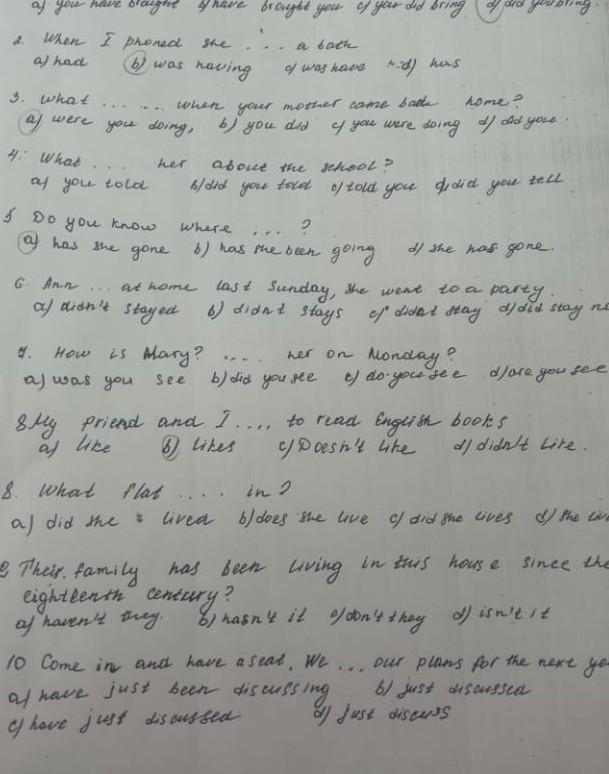 a) you have brought b) have brought you c) you did bring d) did you bring.
2. When I phoned she .... a bath
a) had b) was having c) was have d) has
3. What ...... when your mother came back home?
a) were you doing, b) you did c) you were doing d) did you.
4. What ... her about the school?
a) you told b) did you told c) told you d) did you tell
5 Do you know where ... ?
a) has she gone b) has she been going d) she has gone.
6. Ann ... at home last Sunday, she went to a party.
a) didn't stayed b) didn't stays c) didn't stay d) did stay
7. How is Mary? .... her on Monday?
a) was you see b) did you see c) do you see d) are you see
8 My friend and I .... to read English books
a) like b) likes c) Doesn't like d) didn't like.
8. What flat .... in?
a) did she lived b) does she live c) did she lives d) she
9 Their family has been living in this house since the
eighteenth century?
a) haven't they. b) hasn't it c) don't they d) isn't it
10 Come in and have a seat. We ... our plans for the next
a) have just been discussing b) just discussed
c) have just discussed d) just discuss